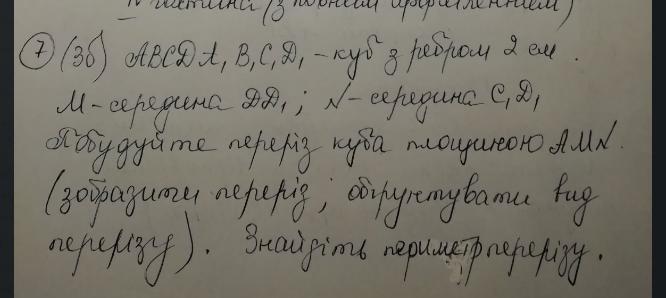 IV частина (з повним оформленням)
7 (3б) ABCDA₁B₁C₁D₁ - куб з ребром 2 см.
M - середина DD₁; N - середина C₁D₁
Побудуйте переріз куба площиною AMN.
(зобразити переріз; обґрунтувати вид
перерізу). Знайдіть периметр перерізу.